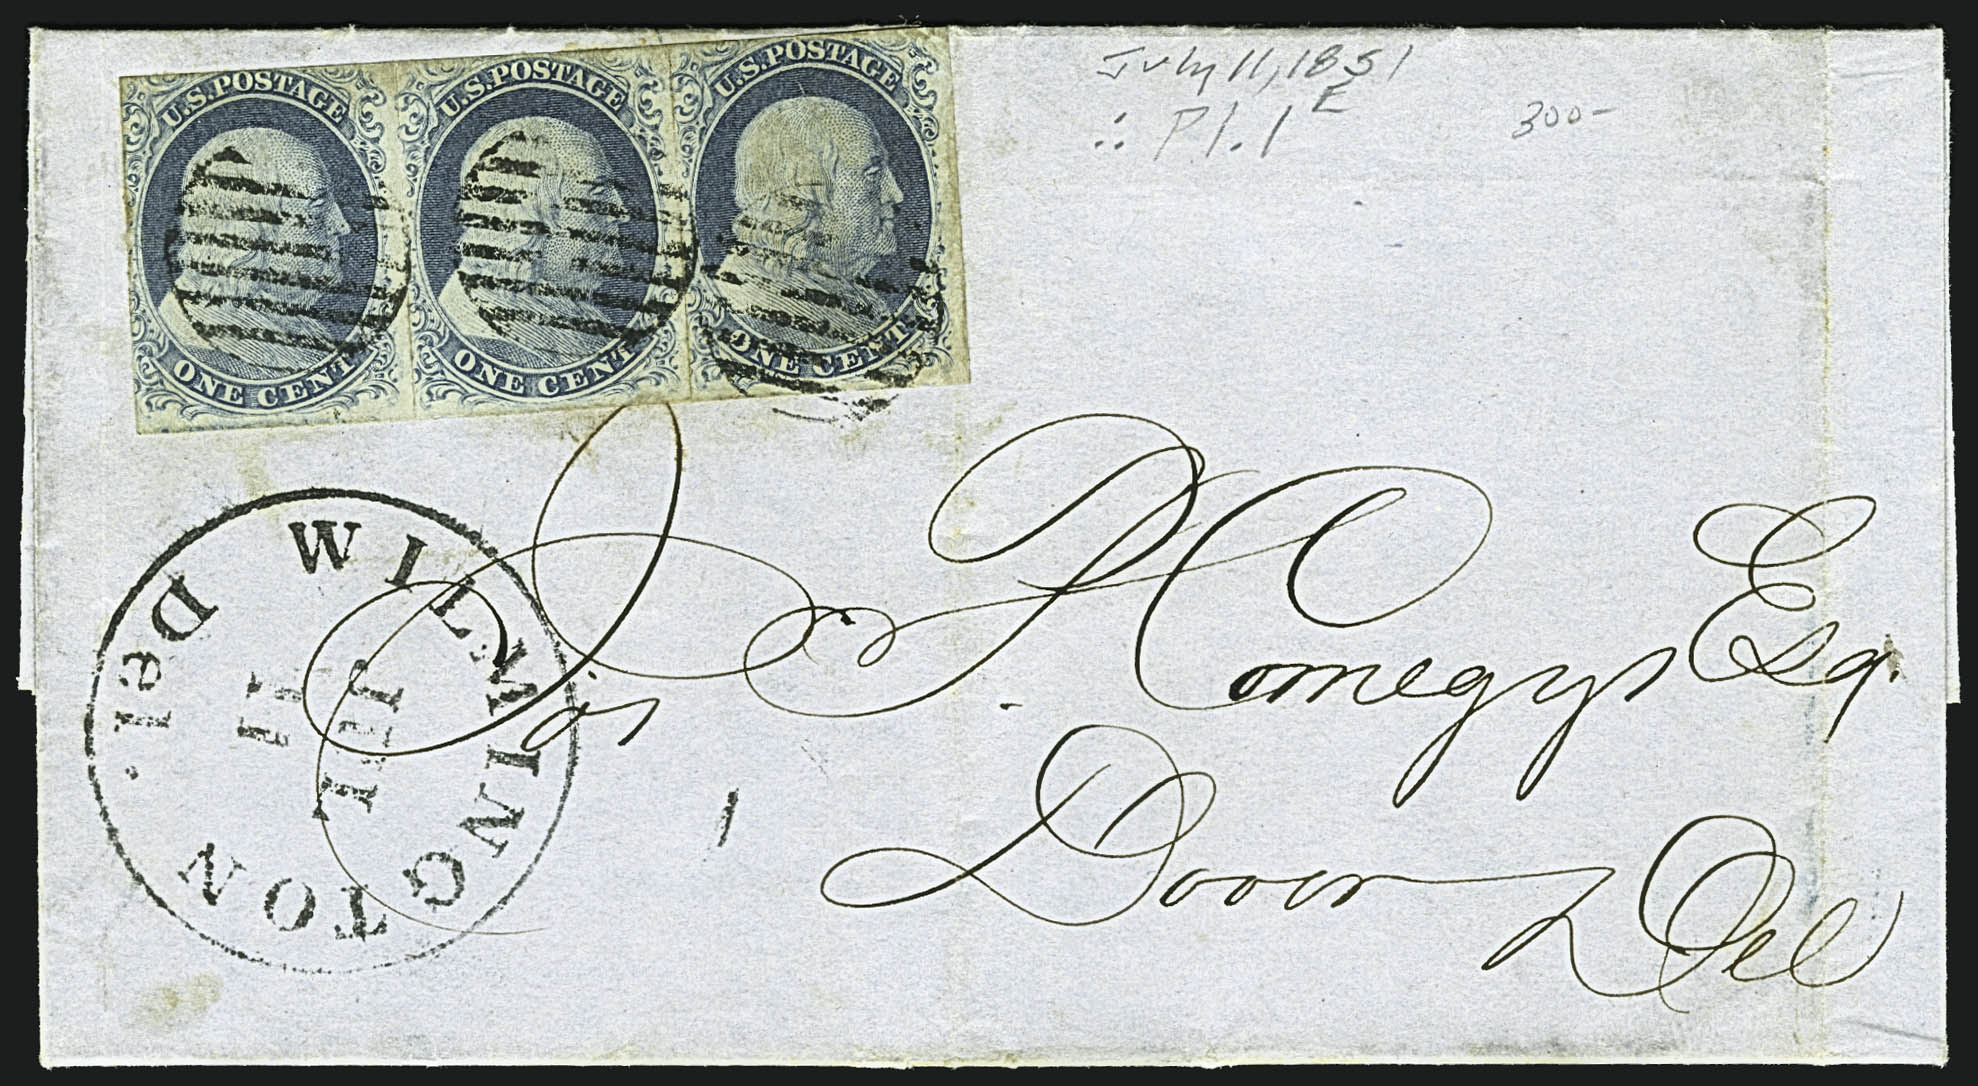 U.S. POSTAGE U.S. POSTAGE U.S. POSTAGE
ONE CENT ONE CENT ONE CENT
July 11, 1851
∴ Pl. 1E
300-
WILMINGTON Del.
JUL
11
P. Comegys Esq.
Dover Del